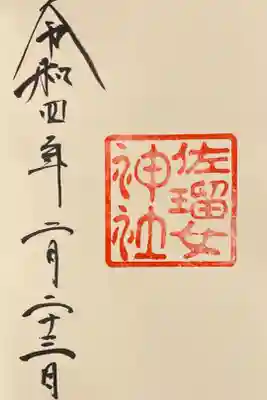 佐瑠女
神社
令和四年二月二十三日